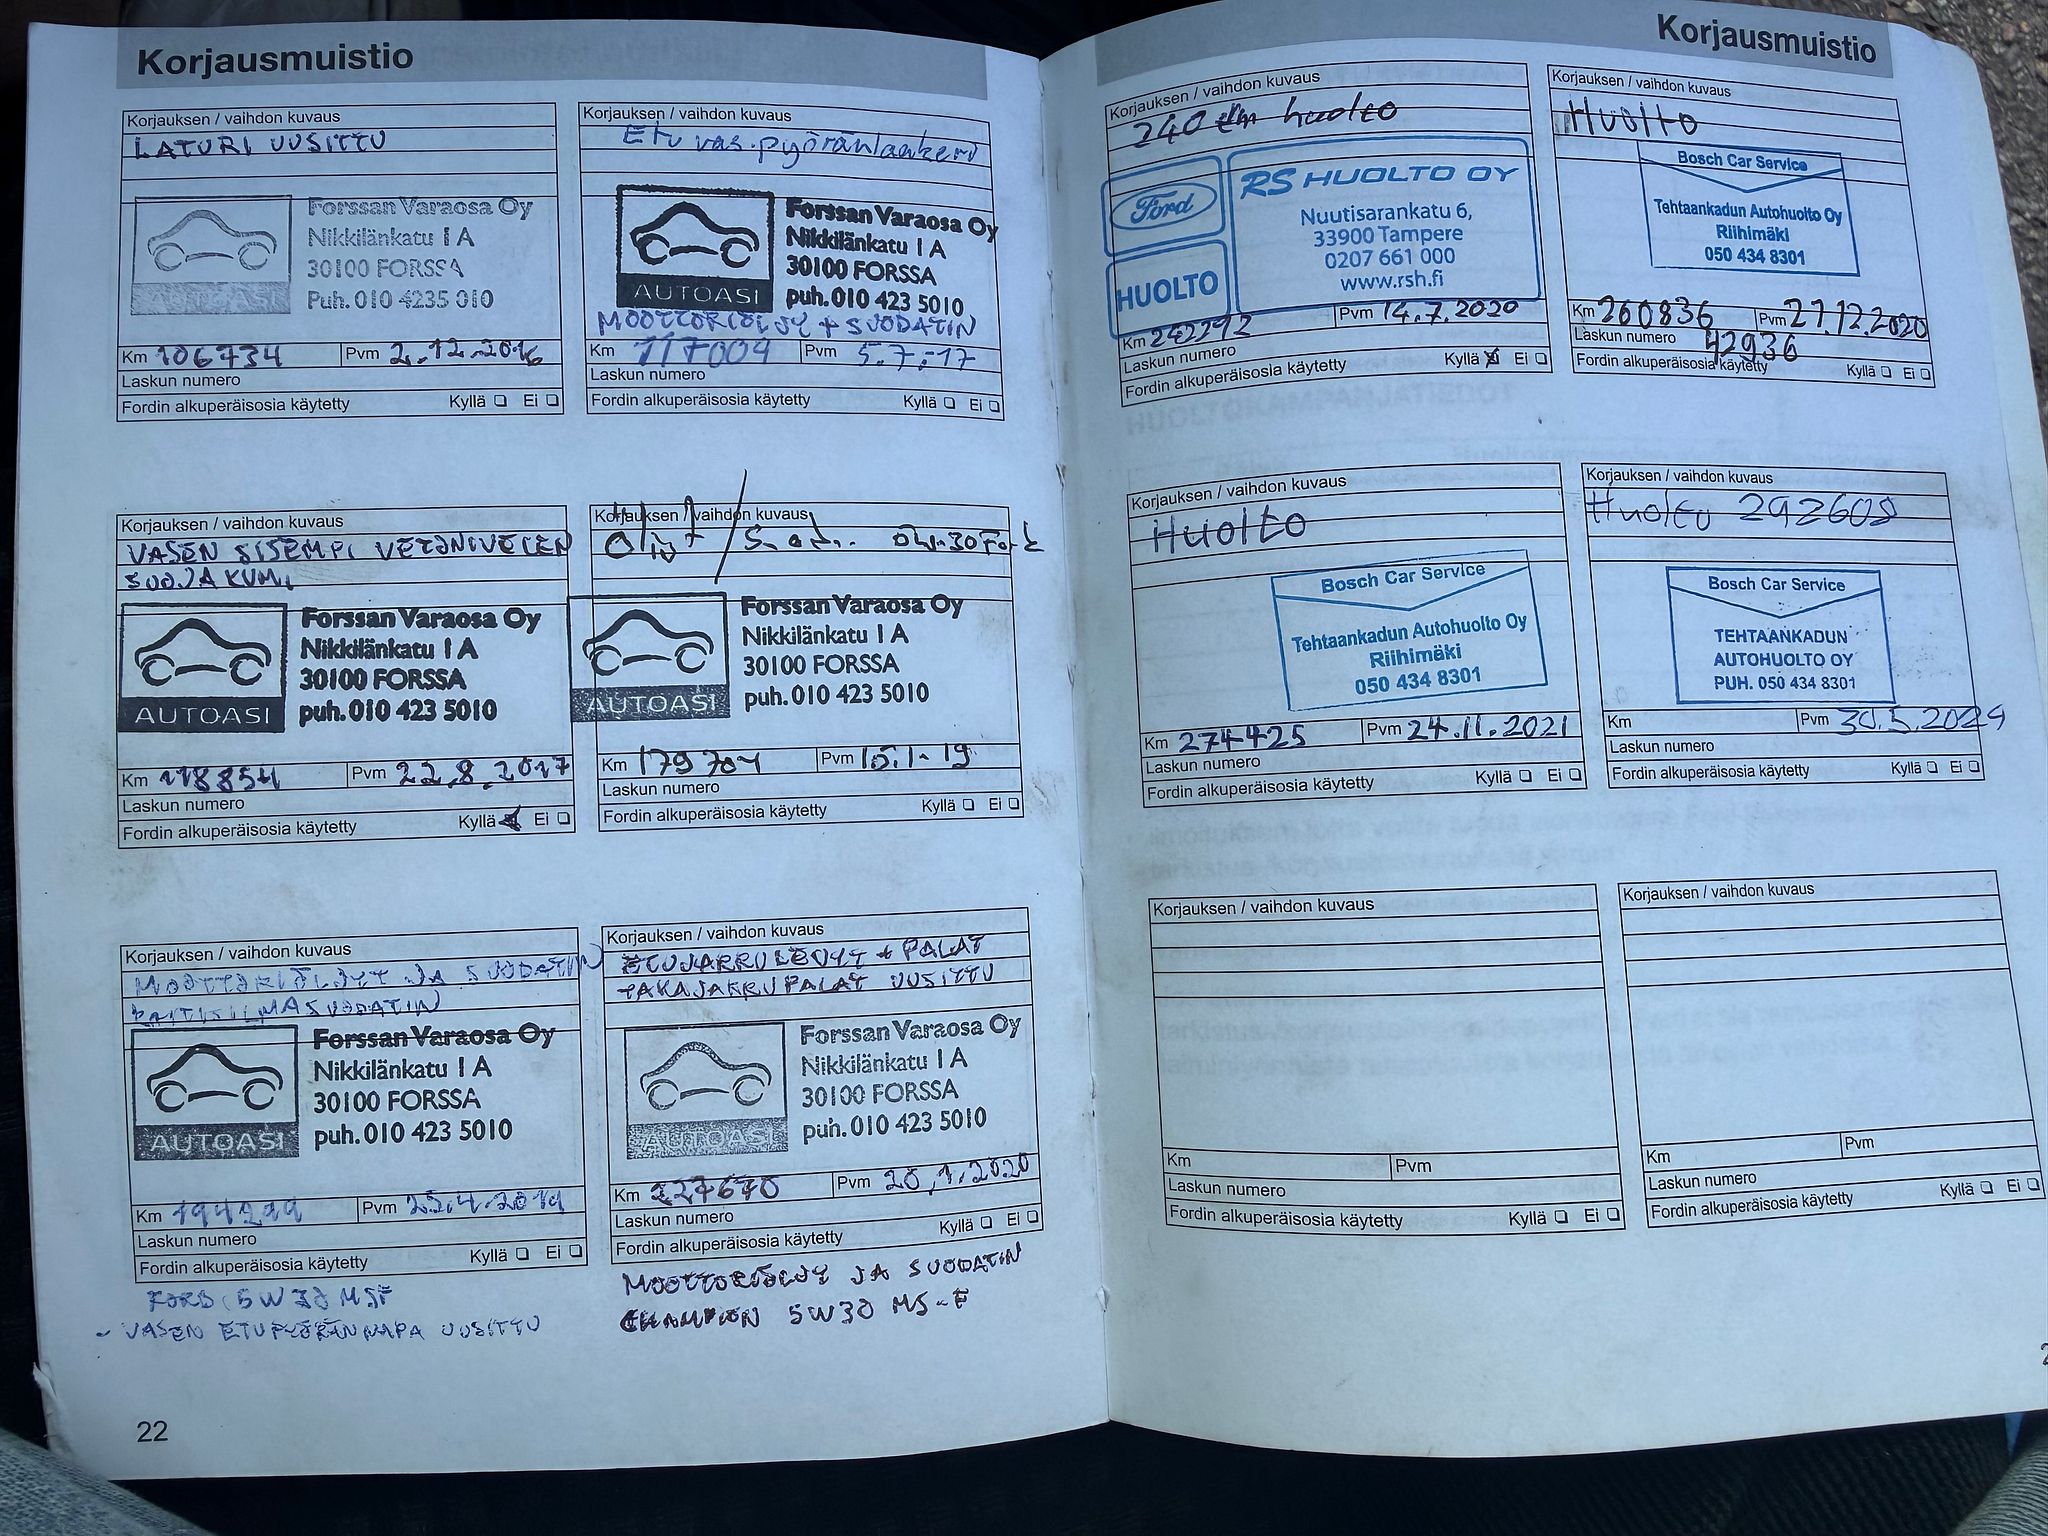 Korjausmuistio
Korjauksen / vaihdon kuvaus
LATURI UUSITTU
Forssan Varaosa Oy
Nikkilänkatu 1 A
30100 FORSSA
Puh. 010 4235 010
AUTOASI
Km 106734 Pvm 2.12.2016
Laskun numero
Fordin alkuperäisosia käytetty Kyllä Ei
Korjauksen / vaihdon kuvaus
Etu vas. pyöränlaakeri
Forssan Varaosa Oy
Nikkilänkatu 1 A
30100 FORSSA
puh. 010 423 5010
AUTOASI
MOOTTORIÖLJY + SUODATIN
Km 117009 Pvm 5.7.-17
Laskun numero
Fordin alkuperäisosia käytetty Kyllä Ei
Korjauksen / vaihdon kuvaus
VASEN SISEMPI VETONIVELEN
SUOJAKUMI
Forssan Varaosa Oy
Nikkilänkatu 1 A
30100 FORSSA
puh. 010 423 5010
AUTOASI
Km 118854 Pvm 22.8.2017
Laskun numero
Fordin alkuperäisosia käytetty Kyllä Ei
Korjauksen / vaihdon kuvaus
Forssan Varaosa Oy
Nikkilänkatu 1 A
30100 FORSSA
puh. 010 423 5010
AUTOASI
Km 179704 Pvm 15.1-19
Laskun numero
Fordin alkuperäisosia käytetty Kyllä Ei
Korjauksen / vaihdon kuvaus
MOOTTORIÖLJYT JA SUODATIN
RAITISILMASUODATIN
Forssan Varaosa Oy
Nikkilänkatu 1 A
30100 FORSSA
puh. 010 423 5010
AUTOASI
Km 194299 Pvm 25.4.2019
Laskun numero
Fordin alkuperäisosia käytetty Kyllä Ei
FORD 5W30 MSF
- VASEN ETUPYÖRÄNNAPA UUSITTU
Korjauksen / vaihdon kuvaus
ETUJARRULEVYT + PALAT
TAKAJARRUPALAT UUSITTU
Forssan Varaosa Oy
Nikkilänkatu 1 A
30100 FORSSA
puh. 010 423 5010
AUTOASI
Km 227670 Pvm 20.1.2020
Laskun numero
Fordin alkuperäisosia käytetty Kyllä Ei
MOOTTORIÖLJY JA SUODATIN
CHAMPION 5W30 MS-F
22
Korjausmuistio
Korjauksen / vaihdon kuvaus
240 tkm huolto
Ford
HUOLTO
RS HUOLTO OY
Nuutisarankatu 6,
33900 Tampere
0207 661 000
www.rsh.fi
Km 242292 Pvm 14.7.2020
Laskun numero
Fordin alkuperäisosia käytetty Kyllä Ei
Korjauksen / vaihdon kuvaus
Huolto
Bosch Car Service
Tehtaankadun Autohuolto Oy
Riihimäki
050 434 8301
Km 260836 Pvm 27.12.2020
Laskun numero 42936
Fordin alkuperäisosia käytetty Kyllä Ei
Korjauksen / vaihdon kuvaus
Huolto
Bosch Car Service
Tehtaankadun Autohuolto Oy
Riihimäki
050 434 8301
Km 274425 Pvm 24.11.2021
Laskun numero
Fordin alkuperäisosia käytetty Kyllä Ei
Korjauksen / vaihdon kuvaus
Huolto 292608
Bosch Car Service
TEHTAANKADUN
AUTOHUOLTO OY
PUH. 050 434 8301
Km Pvm 30.5.2024
Laskun numero
Fordin alkuperäisosia käytetty Kyllä Ei
Korjauksen / vaihdon kuvaus
Km Pvm
Laskun numero
Fordin alkuperäisosia käytetty Kyllä Ei
Korjauksen / vaihdon kuvaus
Km Pvm
Laskun numero
Fordin alkuperäisosia käytetty Kyllä Ei